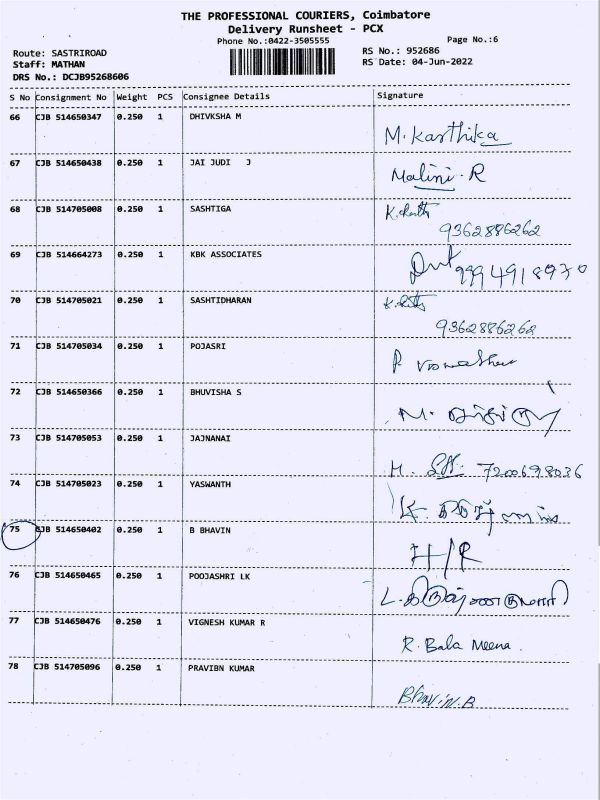 THE PROFESSIONAL COURIERS, Coimbatore
Delivery Runsheet - PCX
Phone No.:0422-3505555
Page No.:6
Route: SASTRIROAD
RS No.: 952686
Staff: MATHAN
RS Date: 04-Jun-2022
DRS No.: DCJB95268606
S No Consignment No Weight PCS Consignee Details Signature
66 CJB 514650347 0.250 1 DHIVKSHA M
M. Karthika
67 CJB 514650438 0.250 1 JAI JUDI J
Malini. R
68 CJB 514705008 0.250 1 SASHTIGA
9362886262
69 CJB 514664273 0.250 1 KBK ASSOCIATES
9994918970
70 CJB 514705021 0.250 1 SASHTIDHARAN
9362886262
71 CJB 514705034 0.250 1 POJASRI
72 CJB 514650366 0.250 1 BHUVISHA S
73 CJB 514705053 0.250 1 JAJNANAI
7200698036
74 CJB 514705023 0.250 1 YASWANTH
75 CJB 514650402 0.250 1 B BHAVIN
H/R
76 CJB 514650465 0.250 1 POOJASHRI LK
77 CJB 514650476 0.250 1 VIGNESH KUMAR R
R. Bala Meena.
78 CJB 514705096 0.250 1 PRAVIBN KUMAR
Bhavin.B